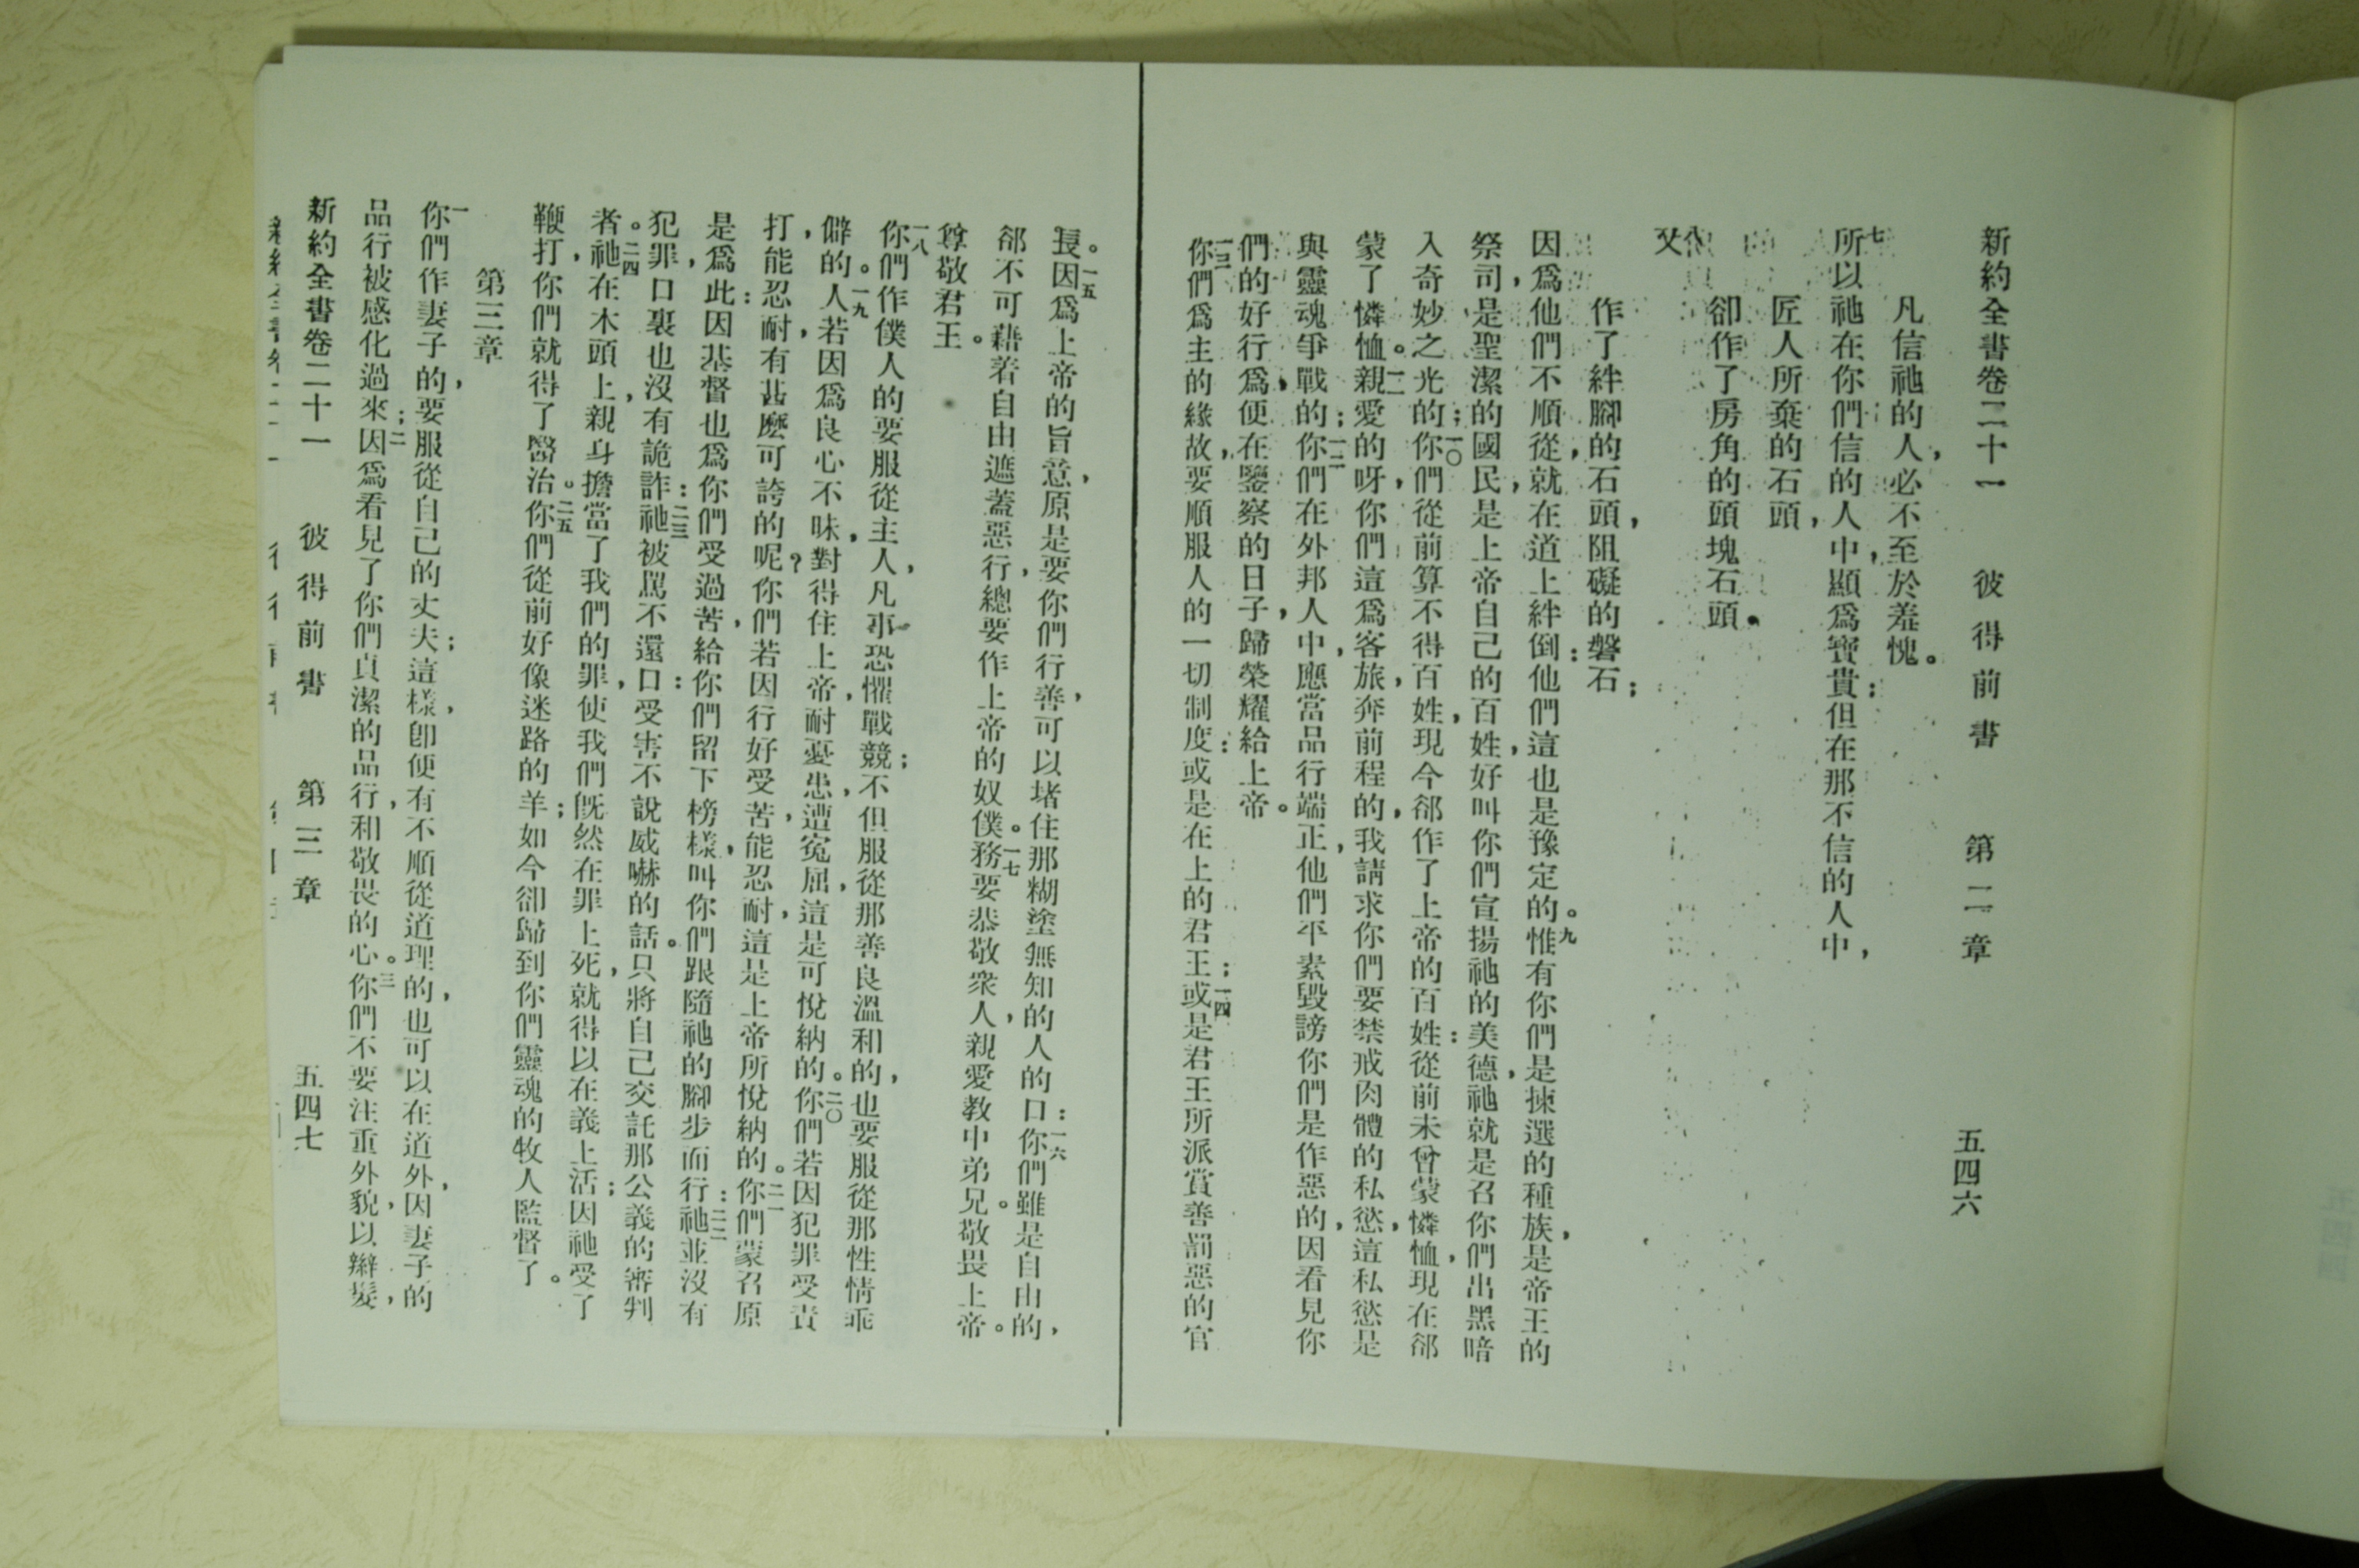 新約全書卷二十一 彼得前書 第二章 五四六
凡信祂的人,必不至於羞愧。
七所以祂在你們信的人中,顯爲寶貴:但在那不信的人中,
匠人所棄的石頭,
卻作了房角的頭塊石頭。
八又
作了絆腳的石頭,阻礙的磐石;
因爲他們不順從,就在道上絆倒:他們這也是豫定的。九惟有你們是揀選的種族,是帝王的
祭司,是聖潔的國民,是上帝自己的百姓,好叫你們宣揚祂的美德,祂就是召你們出黑暗
入奇妙之光的;一〇你們從前算不得百姓,現今卻作了上帝的百姓:從前未曾蒙憐恤,現在卻
蒙了憐恤。一一親愛的呀,你們這爲客旅,奔前程的,我請求你們要禁戒肉體的私慾,這私慾是
與靈魂爭戰的;一二你們在外邦人中,應當品行端正,他們平素毀謗你們是作惡的,因看見你
們的好行爲,便在鑒察的日子,歸榮耀給上帝。
一三你們爲主的緣故,要順服人的一切制度:或是在上的君王;一四或是君王所派賞善罰惡的官
長。一五因爲上帝的旨意,原是要你們行善,可以堵住那糊塗無知的人的口:一六你們雖是自由的,
卻不可藉着自由遮蓋惡行,總要作上帝的奴僕。一七務要恭敬衆人,親愛教中弟兄。敬畏上帝。
尊敬君王。
一八你們作僕人的要服從主人,凡事恐懼戰競;不但服從那善良溫和的,也要服從那性情乖
僻的。一九人若因爲良心不昧,對得住上帝,耐憂患,遭寃屈,這是可悅納的。二〇你們若因犯罪受責
打,能忍耐,有甚麼可誇的呢?你們若因行好受苦,能忍耐,這是上帝所悅納的。二一你們蒙召原
是爲此:因基督也爲你們受過苦,給你們留下榜樣,叫你們跟隨祂的腳步而行:二二祂並沒有
犯罪,口裏也沒有詭詐:二三祂被罵不還口:受害不說威嚇的話。只將自己交託那公義的審判
者。二四祂在木頭上,親身擔當了我們的罪,使我們旣然在罪上死,就得以在義上活;因祂受了
鞭打,你們就得了醫治。二五你們從前好像迷路的羊;如今卻歸到你們靈魂的牧人監督了。
第三章
一你們作妻子的,要服從自己的丈夫;這樣,卽便有不順從道理的,也可以在道外,因妻子的
品行被感化過來;二因爲看見了你們貞潔的品行,和敬畏的心。三你們不要注重外貌,以辮髮,
新約全書卷二十一 彼得前書 第三章 五四七